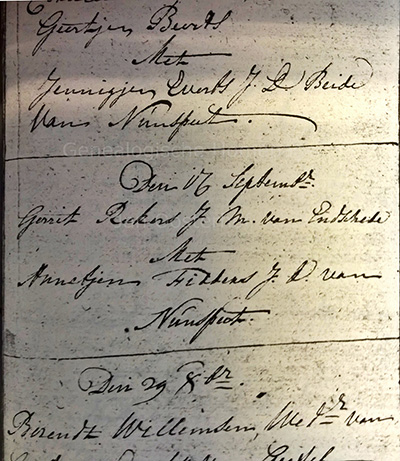 Geertjen Beerts
Met
Jennigjen Everts J. D. Beide
Van Nunspeet.
Den 17 Septembr.
Gerrit Rekers J. M. van Endschede
Met
Annetjen Fiddens J. D. van
Nunspeet.
Den 29 8br.
Berendt Willemsen, Wedr van